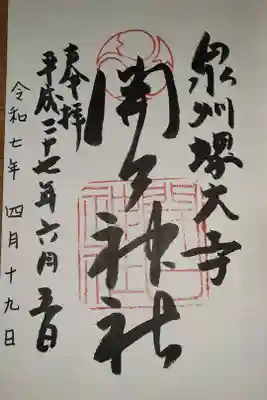 泉州堺大寺
開口神社
奉拝
平成二十七年六月 日
令和七年 四月十九日